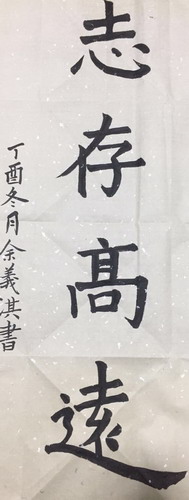 志存髙遠
丁酉冬月余義淇書